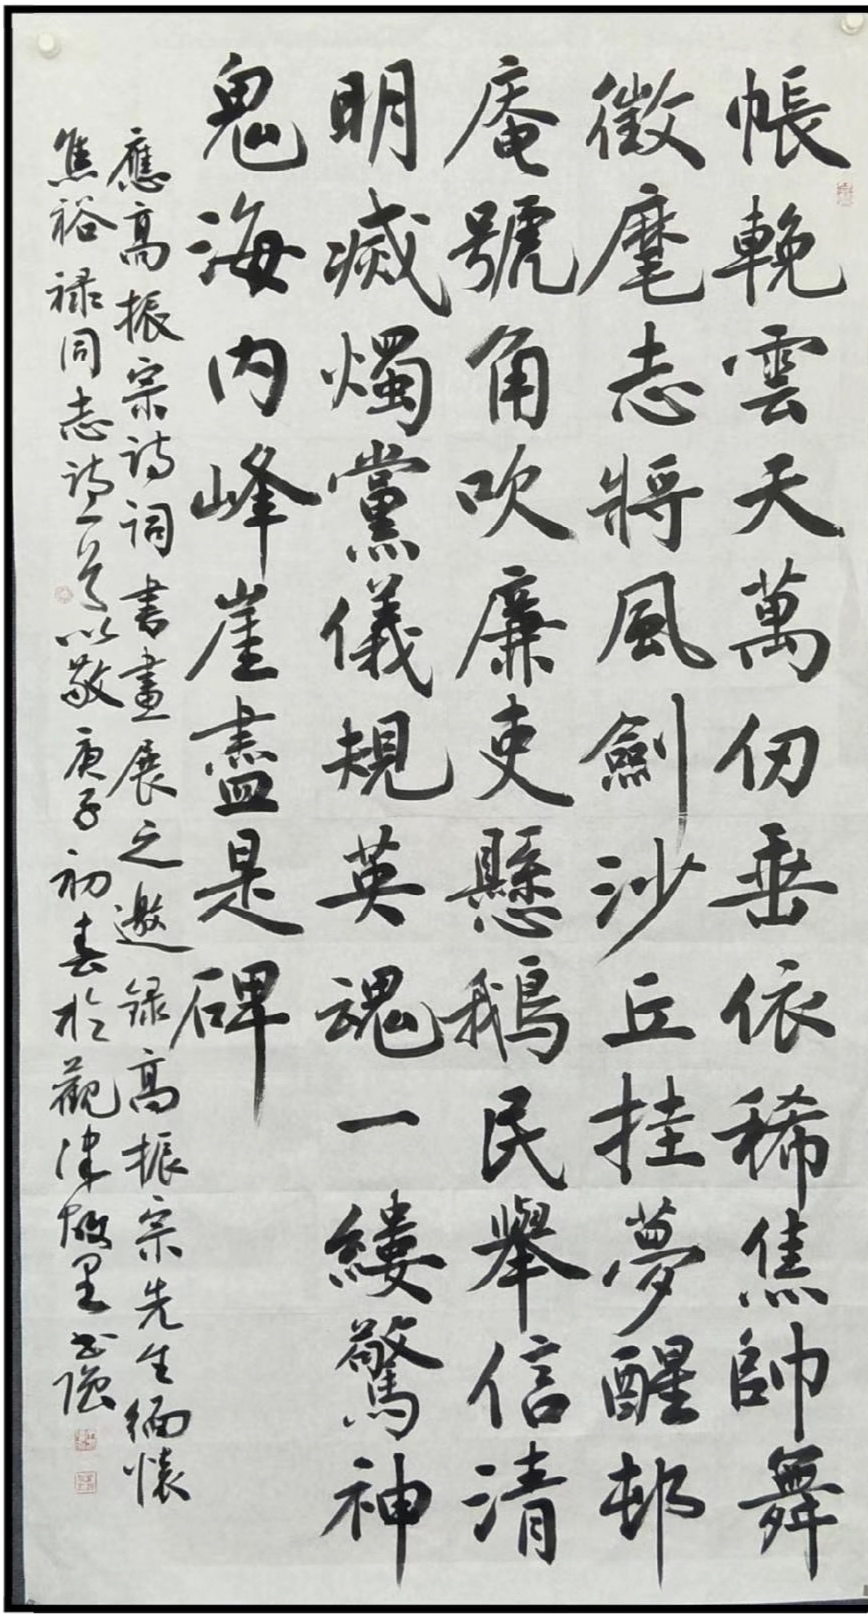 帳輓雲天萬仞垂依稀焦帥舞
徵麾志將風劍沙丘挂夢醒邨
庵號角吹廉吏懸鵝民舉信清
明滅燭黨儀規英魂一縷驚神
鬼海内峰崖盡是碑
應高振宗诗词書畫展之邀録高振宗先生缅懷
焦裕禄同志詩一首以敬庚子初春於觀津故里